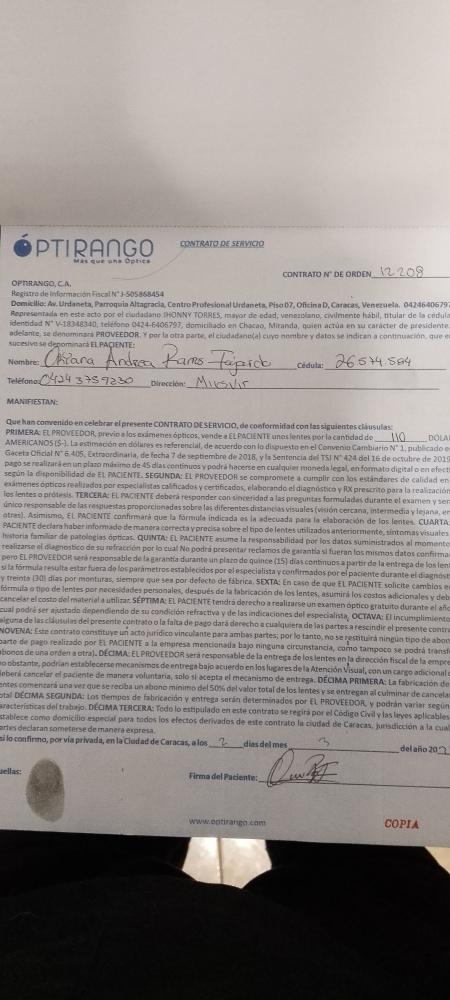 ÓPTIRANGO
Más que una Óptica
CONTRATO DE SERVICIO
CONTRATO N° DE ORDEN 12208
OPTIRANGO, C.A.
Registro de Información Fiscal N° J-505868454
Domicilio: Av. Urdaneta, Parroquia Altagracia, Centro Profesional Urdaneta, Piso 07, Oficina D, Caracas, Venezuela. 0424640679
Representada en este acto por el ciudadano JHONNY TORRES, mayor de edad, venezolano, civilmente hábil, titular de la cédula
identidad N° V-18348340, teléfono 0424-6406797, domiciliado en Chacao, Miranda, quien actúa en su carácter de presidente
adelante, se denominará PROVEEDOR. Y por la otra parte, el ciudadano(a) cuyo nombre y datos se indican a continuación, que e
sucesivo se denominará EL PACIENTE:
Nombre: Andrea Ramos Fajardo Cédula: 26.574.584
Teléfono: 0424 3759230 Dirección:
MANIFIESTAN:
Que han convenido en celebrar el presente CONTRATO DE SERVICIO, de conformidad con las siguientes cláusulas:
PRIMERA: EL PROVEEDOR, previo a los exámenes ópticos, vende a EL PACIENTE unos lentes por la cantidad de 110 DÓLA
AMERICANOS ($-). La estimación en dólares es referencial, de acuerdo con lo dispuesto en el Convenio Cambiario N° 1, publicado e
Gaceta Oficial N° 6.405, Extraordinaria, de fecha 7 de septiembre de 2018, y la Sentencia del TSJ N° 424 del 16 de octubre de 2019
pago se realizará en un plazo máximo de 45 días continuos y podrá hacerse en cualquier moneda legal, en formato digital o en efect
según la disponibilidad de EL PACIENTE. SEGUNDA: EL PROVEEDOR se compromete a cumplir con los estándares de calidad en
exámenes ópticos realizados por especialistas calificados y certificados, elaborando el diagnóstico y RX prescrito para la realización
los lentes o prótesis. TERCERA: EL PACIENTE deberá responder con sinceridad a las preguntas formuladas durante el examen y ser
único responsable de las respuestas proporcionadas sobre las diferentes distancias visuales (visión cercana, intermedia y lejana, en
otras). Asimismo, EL PACIENTE confirmará que la fórmula indicada es la adecuada para la elaboración de los lentes. CUARTA:
PACIENTE declara haber informado de manera correcta y precisa sobre el tipo de lentes utilizados anteriormente, síntomas visuales
historia familiar de patologías ópticas. QUINTA: EL PACIENTE asume la responsabilidad por los datos suministrados al momento
realizarse el diagnostico de su refracción por lo cual No podrá presentar reclamos de garantía si fueran los mismos datos confirma
pero EL PROVEEDOR será responsable de la garantía durante un plazo de quince (15) días continuos a partir de la entrega de los len
si la fórmula resulta estar fuera de los parámetros establecidos por el especialista y confirmados por el paciente durante el diagnóst
y treinta (30) días por monturas, siempre que sea por defecto de fábrica. SEXTA: En caso de que EL PACIENTE solicite cambios e
fórmula o tipo de lentes por necesidades personales, después de la fabricación de los lentes, asumirá los costos adicionales y deb
cancelar el costo del material a utilizar. SÉPTIMA: EL PACIENTE tendrá derecho a realizarse un examen óptico gratuito durante el año
cual podrá ser ajustado dependiendo de su condición refractiva y de las indicaciones del especialista. OCTAVA: El incumplimiento
alguna de las cláusulas del presente contrato o la falta de pago dará derecho a cualquiera de las partes a rescindir el presente contr
NOVENA: Este contrato constituye un acto jurídico vinculante para ambas partes; por lo tanto, no se restituirá ningún tipo de abon
parte de pago realizado por EL PACIENTE a la empresa mencionada bajo ninguna circunstancia, como tampoco se podrá transf
abonos de una orden a otra). DÉCIMA: EL PROVEEDOR será responsable de la entrega de los lentes en la dirección fiscal de la empre
no obstante, podrían establecerse mecanismos de entrega bajo acuerdo en los lugares de la Atención Visual, con un cargo adicional
deberá cancelar el paciente de manera voluntaria, solo si acepta el mecanismo de entrega. DÉCIMA PRIMERA: La fabricación de
entes comenzará una vez se reciba un abono mínimo del 50% del valor total de los lentes y se entregan al culminar de cancela
otal DÉCIMA SEGUNDA: Los tiempos de fabricación y entrega serán determinados por EL PROVEEDOR, y podrán variar según
aracterísticas del trabajo. DÉCIMA TERCERA: Todo lo estipulado en este contrato se regirá por el Código Civil y las leyes aplicables
stablece como domicilio especial para todos los efectos derivados de este contrato la ciudad de Caracas, jurisdicción a la cual
artes declaran someterse de manera expresa.
sí lo confirmo, por vía privada, en la Ciudad de Caracas, a los 2 días del mes 3 del año 202
uellas:
Firma del Paciente:
www.optirango.com
COPIA